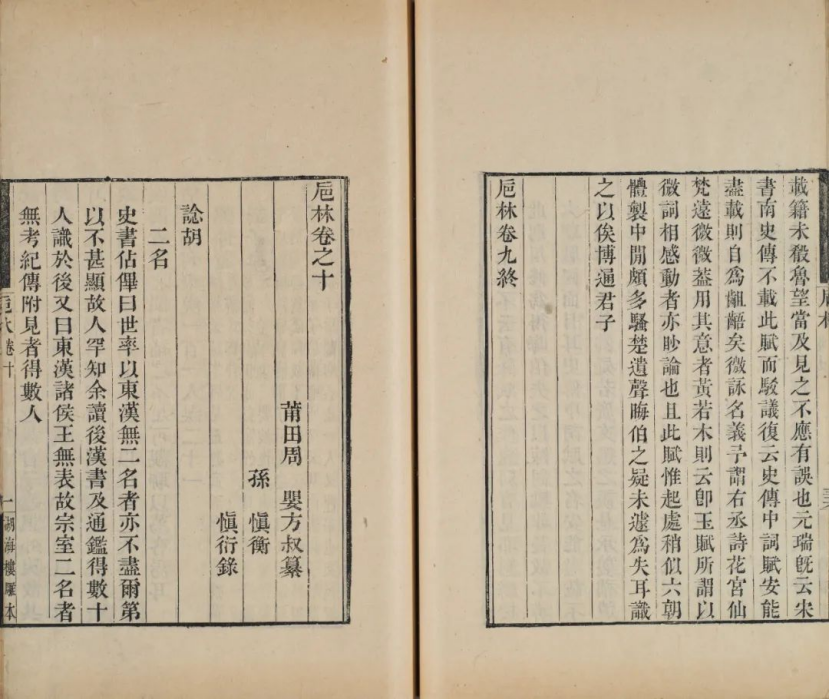 載籍未殽魯望當及見之不應有誤也元瑞旣云宋
書南史傳不載此賦而駁議復云史傳中詞賦安能
盡載則自爲齟齬矣微詠名義予謂右丞詩花宮仙
梵遠微微葢用其意者黃若木則云卽玉賦所謂以
微詞相感動者亦眇論也且此賦惟起處稍似六朝
體製中閒頗多騷楚遺聲晦伯之疑未遽爲失耳識
之以俟博通君子
巵林卷九終
巵林卷之十
莆田周 嬰方叔纂
孫 愼衡
愼衍錄
諗胡
二名
史書佔㒓曰世率以東漢無二名者亦不盡爾第
以不甚顯故人罕知余讀後漢書及通鑑得數十
人識於後又曰東漢諸侯王無表故宗室二名者
無考紀傳附見者得數人
巵林卷十
一 湖海樓雕本